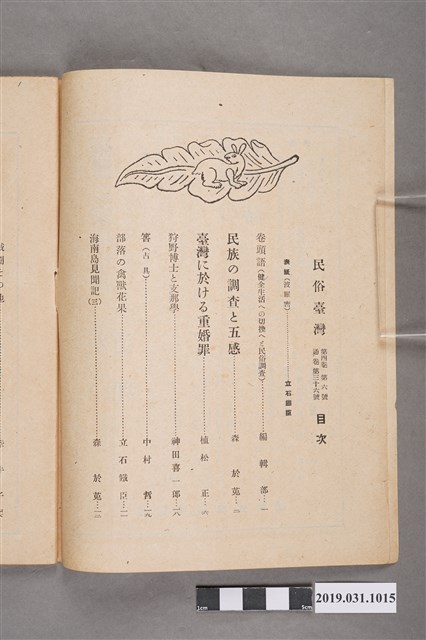 民俗臺灣 第四卷 第六號 通卷 第三十六號 目次
表紙 立石鐵臣
卷頭語(健全生活への切換へと民俗調査)……編輯部…一
民族の調査と五感……森於菟…二
臺灣に於ける重婚罪……植松正…六
狩野博士と支那學……神田喜一郎…一八
筶(占具)……中村哲…一九
部落の禽獸花果……立石鐵臣…二一
海南島見聞記(三)……森於菟…
1cm
5cm
2019.031.1015